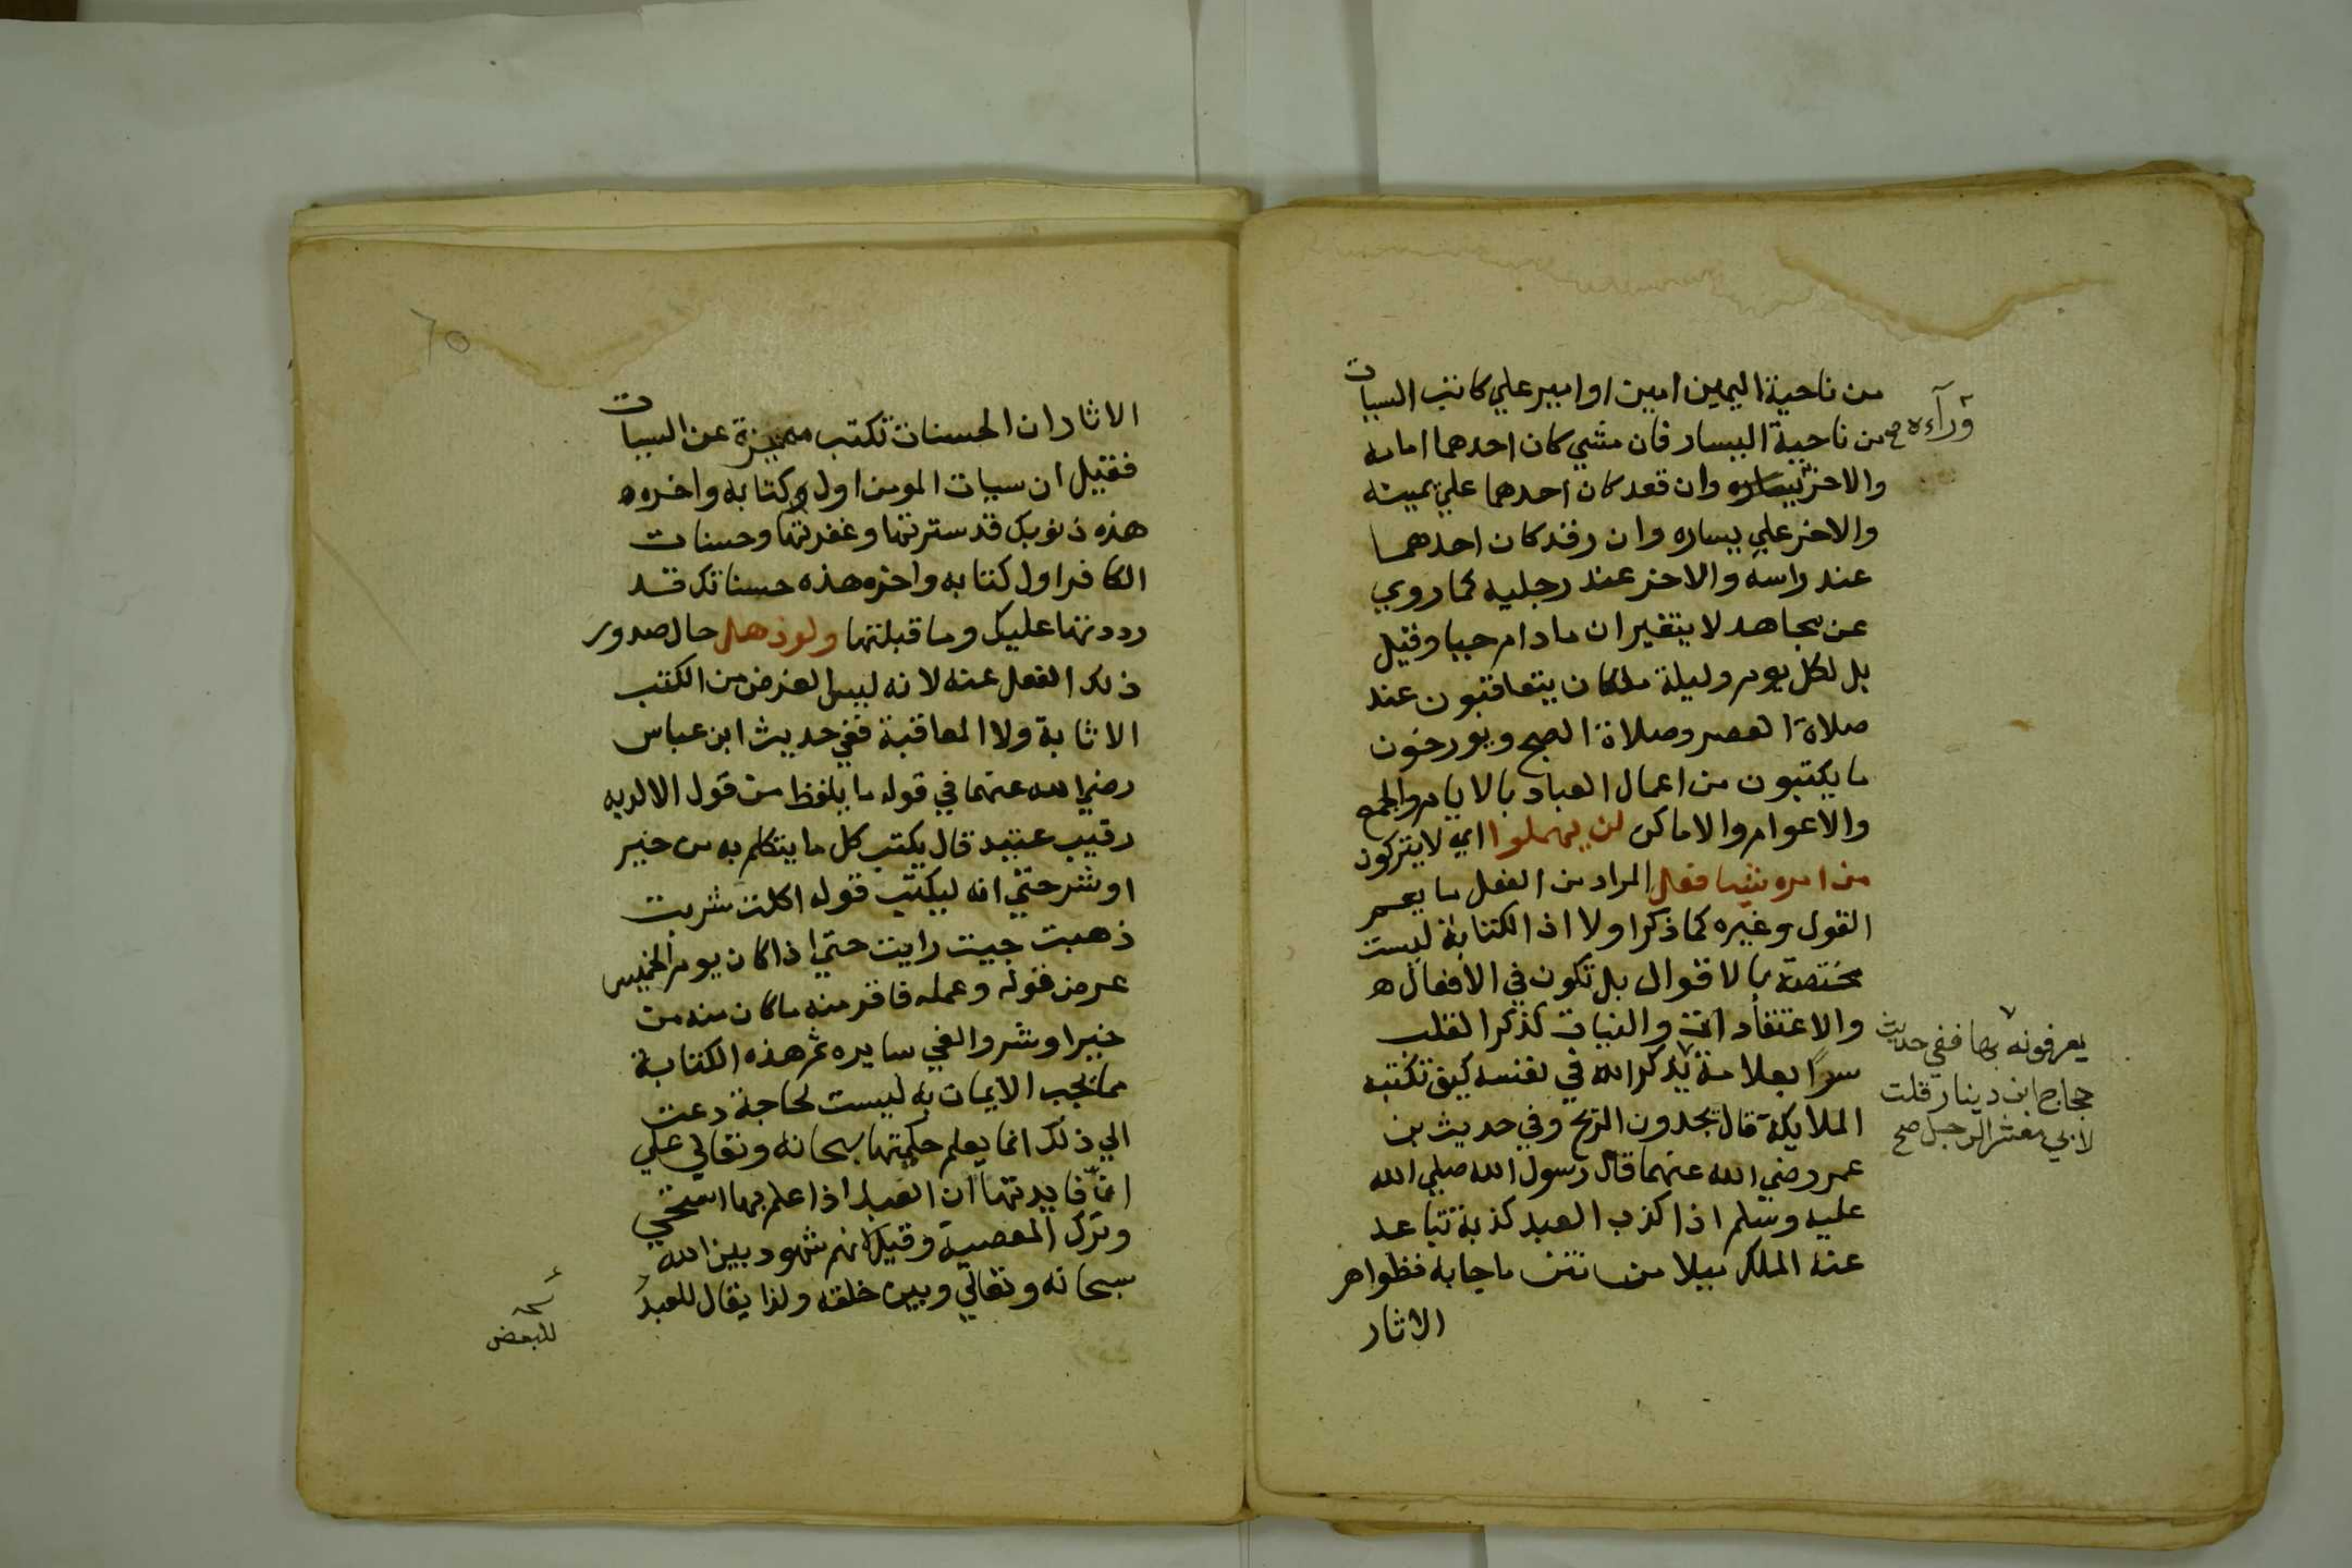 من ناحية اليمين امين او امير علي كاتب السيات
من ناحية اليسار فان مشي كان احدهما امامه
وراءه صح
والاخر وان قعد كان احدهما علي يمينه
والاخر علي يساره وان رقد كان احدهما
عند راسه والاخر عند رجليه كما روي
عن مجاهد لا يتغيران ما دام حيا وقيل
بل لكل يوم وليلة ملكان يتعاقبون عند
صلاة العصر وصلاة الصبح ويورخون
ما يكتبون من اعمال العباد بالايام والجمع
والاعوام والاماكن لن يهملوا اي لا يتركون
من امره شيا فعل المراد من الفعل ما يعم
القول وغيره كما ذكر اولا اذ الكتابة ليست
مختصة بالاقوال بل تكون في الافعال
والاعتقادات والنيات كذكر القلب
سرا بعلامة يذكر الله في نفسه كيف تكتبه
يعرفونه بها ففي حديث
حجاج ابن دينار قلت
لابي معشر الرجل صح
الملايكة قال يجدون الريح وفي حديث بن
عمر رضي الله عنهما قال رسول الله صلي الله
عليه وسلم اذا كذب العبد كذبة تباعد
عنه الملك ميلا من نتن ما جا به فظواهر
الاثار
٦٥
الاثار ان الحسنات تكتب متميزة عن السيات
فقيل ان سيات المومن اول كتابه واخره
هذه ذنوبك قد سترتها وغفرتها وحسنات
الكافر اول كتابه واخره هذه حسناتك قد
رددتها عليك وما قبلتها ولو ذهل حال صدور
ذلك الفعل عنه لانه ليس الغرض من الكتب
الاثابة ولا المعاقبة ففي حديث ابن عباس
رضي الله عنهما في قوله ما يلفظ من قول الا لديه
رقيب عتيد قال يكتب كل ما يتكلم به من خير
او شر حتي انه ليكتب قوله اكلت شربت
ذهبت جيت رايت حتي اذا كان يوم الخميس
عرض قوله وعمله فاقر منه ما كان منه من
خير او شر والغي سايره ثم هذه الكتابة
مما يجب الايمان به ليست لحاجة دعت
الي ذلك انما يعلم حكمتها سبحانه وتعالي علي
ان فايدتها ان العبد اذا علم بها استحي
وترك المعصية وقيل لانهم شهود بين الله
سبحانه وتعالي وبين خلقه ولذا يقال للعبد
للبعض